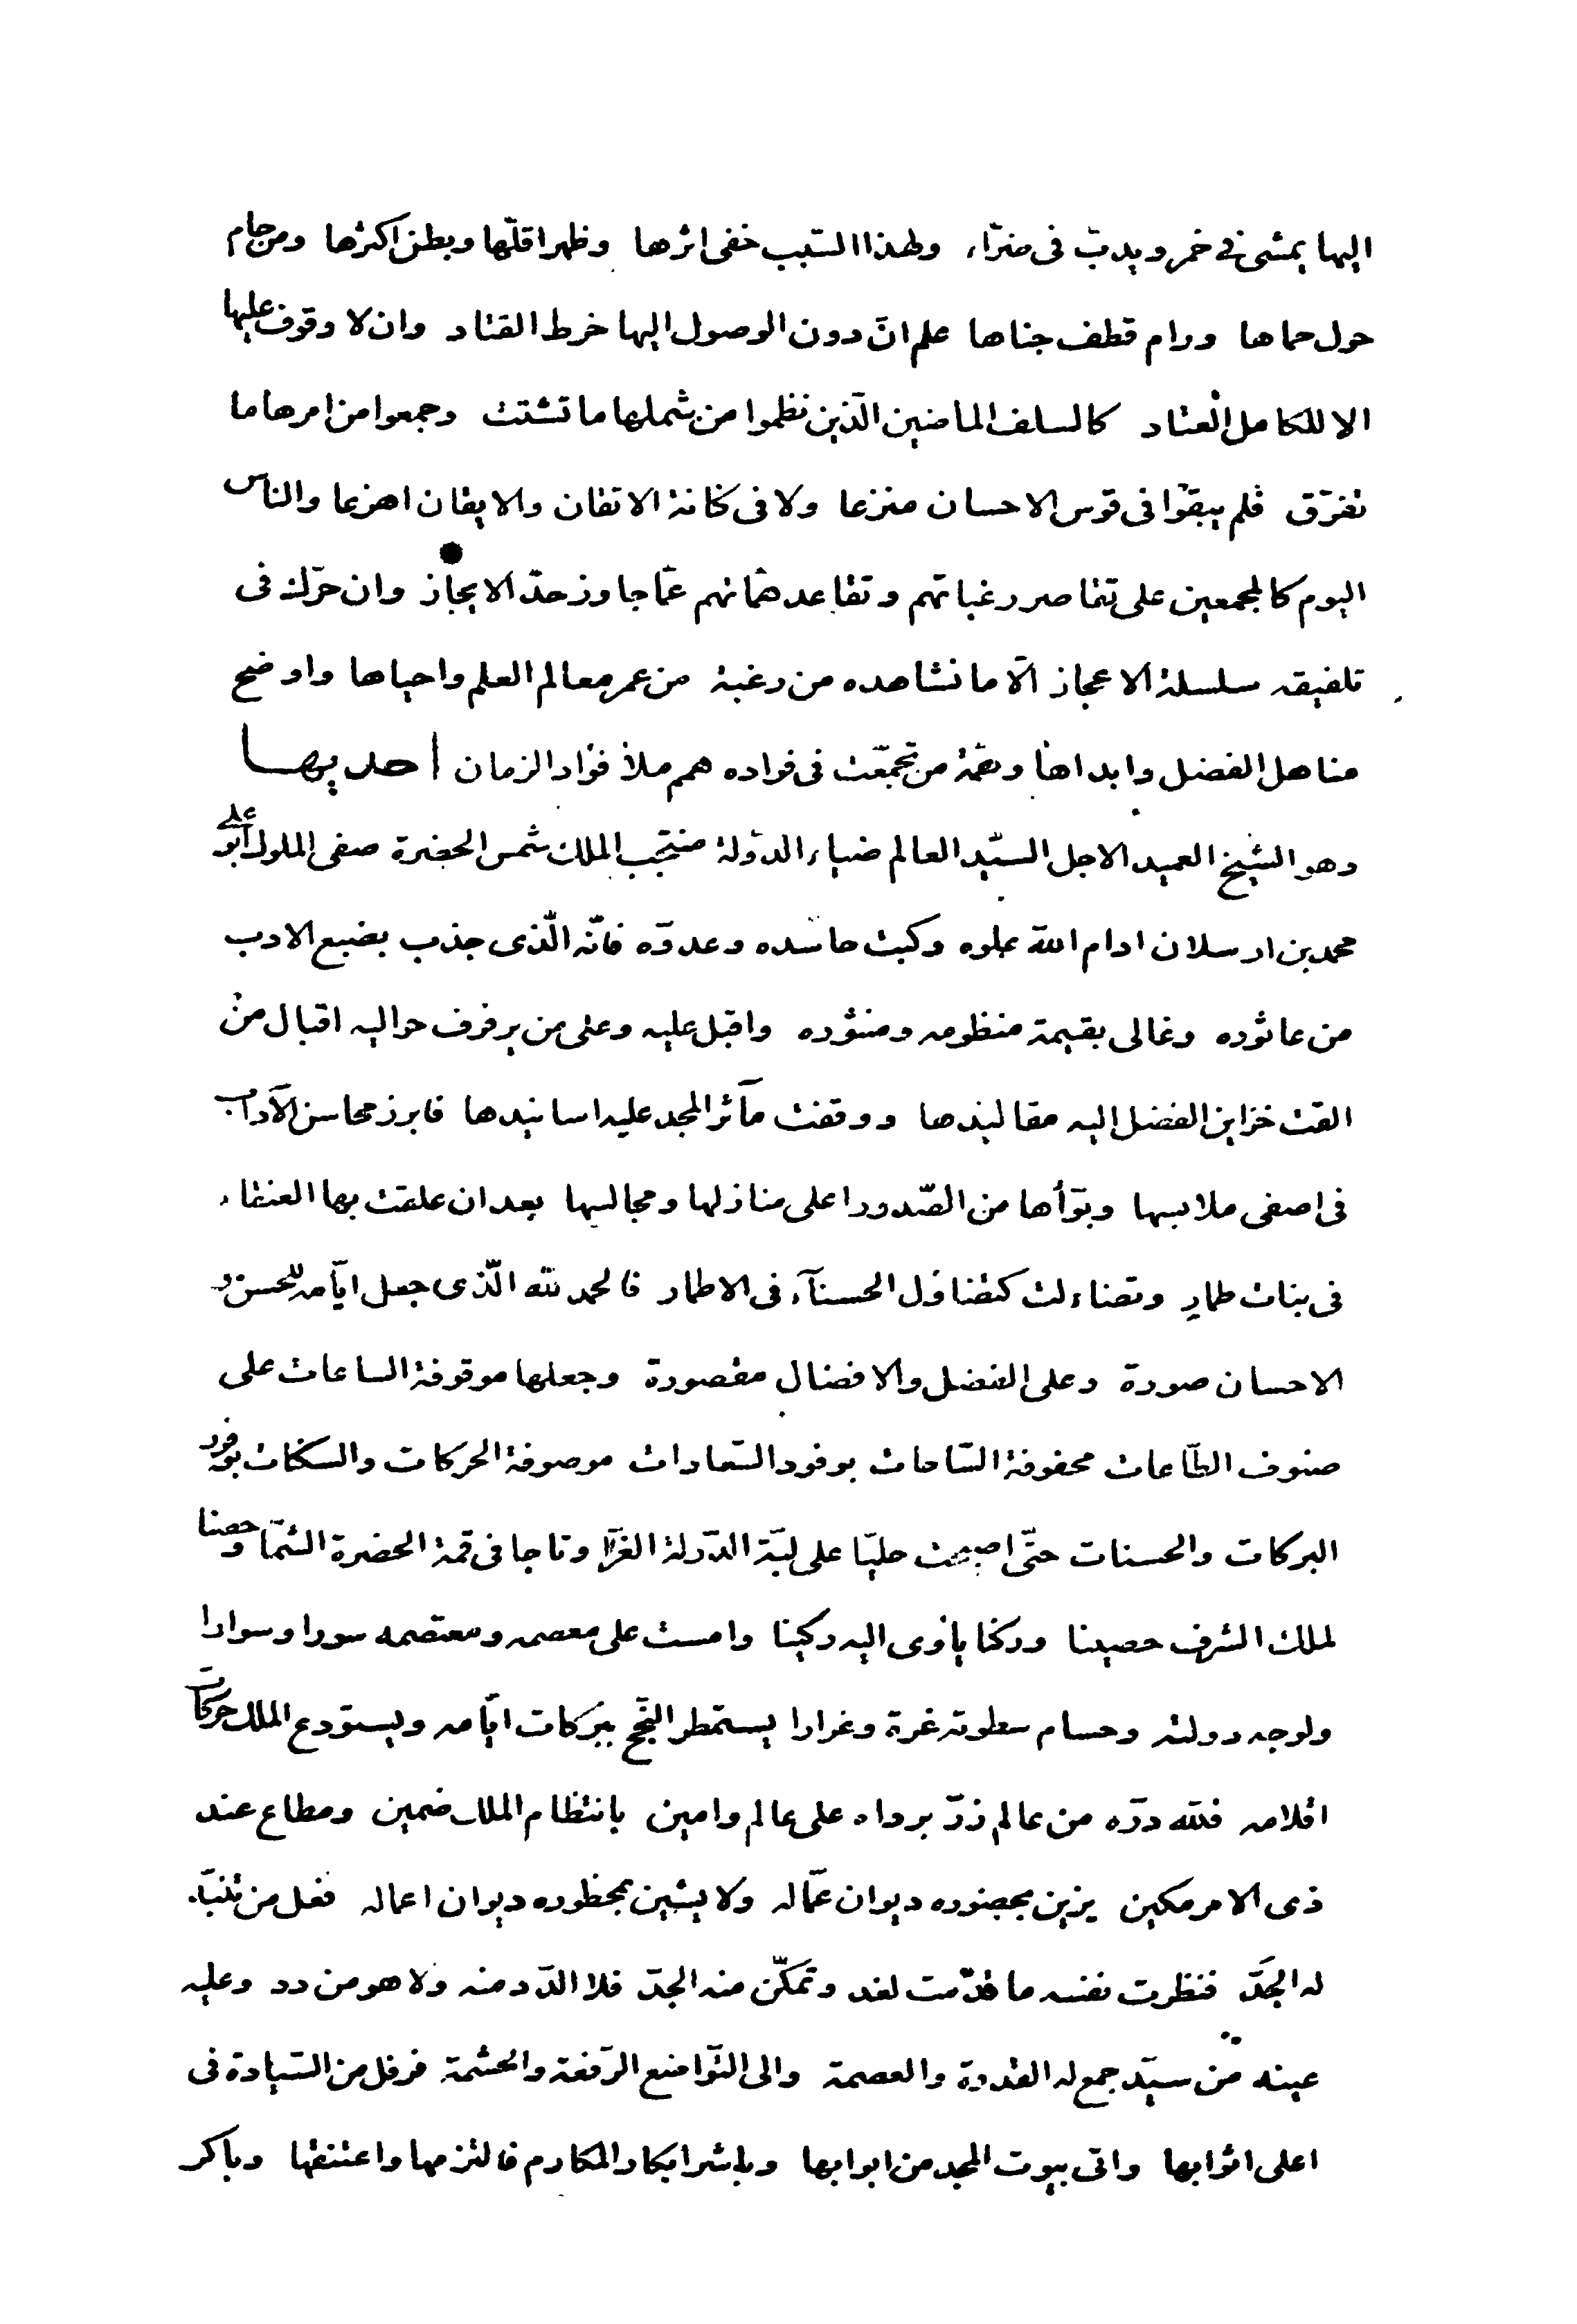 اليها يمشى فى خمر ويدبّ فى ضرّاء ولهذا السّبب خفى اثرها وظهر اقلّها وبطن اكثرها ومن حام
حول حماها ورام قطف جناها علم انّ دون الوصول اليها خرط القتاد وان لا وقوف عليها
الا للكامل العتاد كالسلف الماضين الّذين نظموا من شملها ما تشتت وجمعوا من امرها ما
تفرّق فلم يبقوا فى قوس الاحسان منزعا ولا فى كنانة الاتقان والايقان اهزعا والناس
اليوم كالمجمعين على تقاصر رغباتهم وتقاعد همّاتهم عمّا جاوز حدّ الايجاز وان حرّك فى
تلفيقه سلسلة الاعجاز الّا ما نشاهده من رغبة من عمر معالم العلم واحياها واوضح
مناهل الفضل وابداها وهمّة من تجمّعت فى فواده همم ملأ فؤاد الزمان احديها
وهو الشيخ العميد الاجل السيّد العالم ضياء الدولة منتجب الملك شمس الحضرة صفى الملوك ابو على
محمد بن ارسلان ادام اللّه علوه وكبت حاسده وعدوّه فانّه الّذى جذب بضبع الادب
من عاثوره وغالى بقيمة منظومه ومنثوره واقبل عليه وعلى من يرفرف حواليه اقبال من
القت خزاين الفضل اليه مقاليدها ووقفت مآثر المجد عليه اسانيدها فابرز محاسن الآداب
فى اصفى ملابسها وبوّأها من الصّدور اعلى منازلها ومجالسها بعد ان علقت بها العنقاء
فى بنات طمار وتضاءلت كتضاؤل الحسنآء فى الاطمار فالحمد للّه الّذى جعل ايّامه للحسن و
الاحسان صورة وعلى الفضل والافضال مقصورة وجعلها موقوفة الساعات على
صنوف الطّاعات محفوفة السّاحات بوفود السّعادات موصوفة الحركات والسكنات بوفور
البركات والحسنات حتّى اصبحت حليّا على لبّة الدّولة الغرّا وتاجا فى قمة الحضرة الشمّا وحصنا
لملك الشرف حصينا وركنا يأوى اليه ركينا وامست على معصمه ومعتصمه سورا وسوارا
ولوجه دولته وحسام سطوته غرة وغرارا يستمطر النجّح ببركات ايّامه ويستودع الملك حركات
اقلامه فللّه درّه من عالم زرّ برداه على عالم وامين بانتظام الملك ضمين ومطاع عند
ذى الامر مكين يزين بحضوره ديوان عمّاله ولا يشين بمحظوره ديوان اعماله فعل من تنبّه
له الجدّ فنظرت نفسه ما قدّمت لغد وتمكّن منه الجدّ فلا الدّد منه ولا هو من دد وعليه
عينه من سيّد جمع له القدرة والعصمة والى التّواضع الرّفعة والحشمة فرفل من السّيادة فى
اعلى اثوابها واتى بيوت المجد من ابوابها وباشر ابكار المكارم فالتزمها واعتنقها وباكر